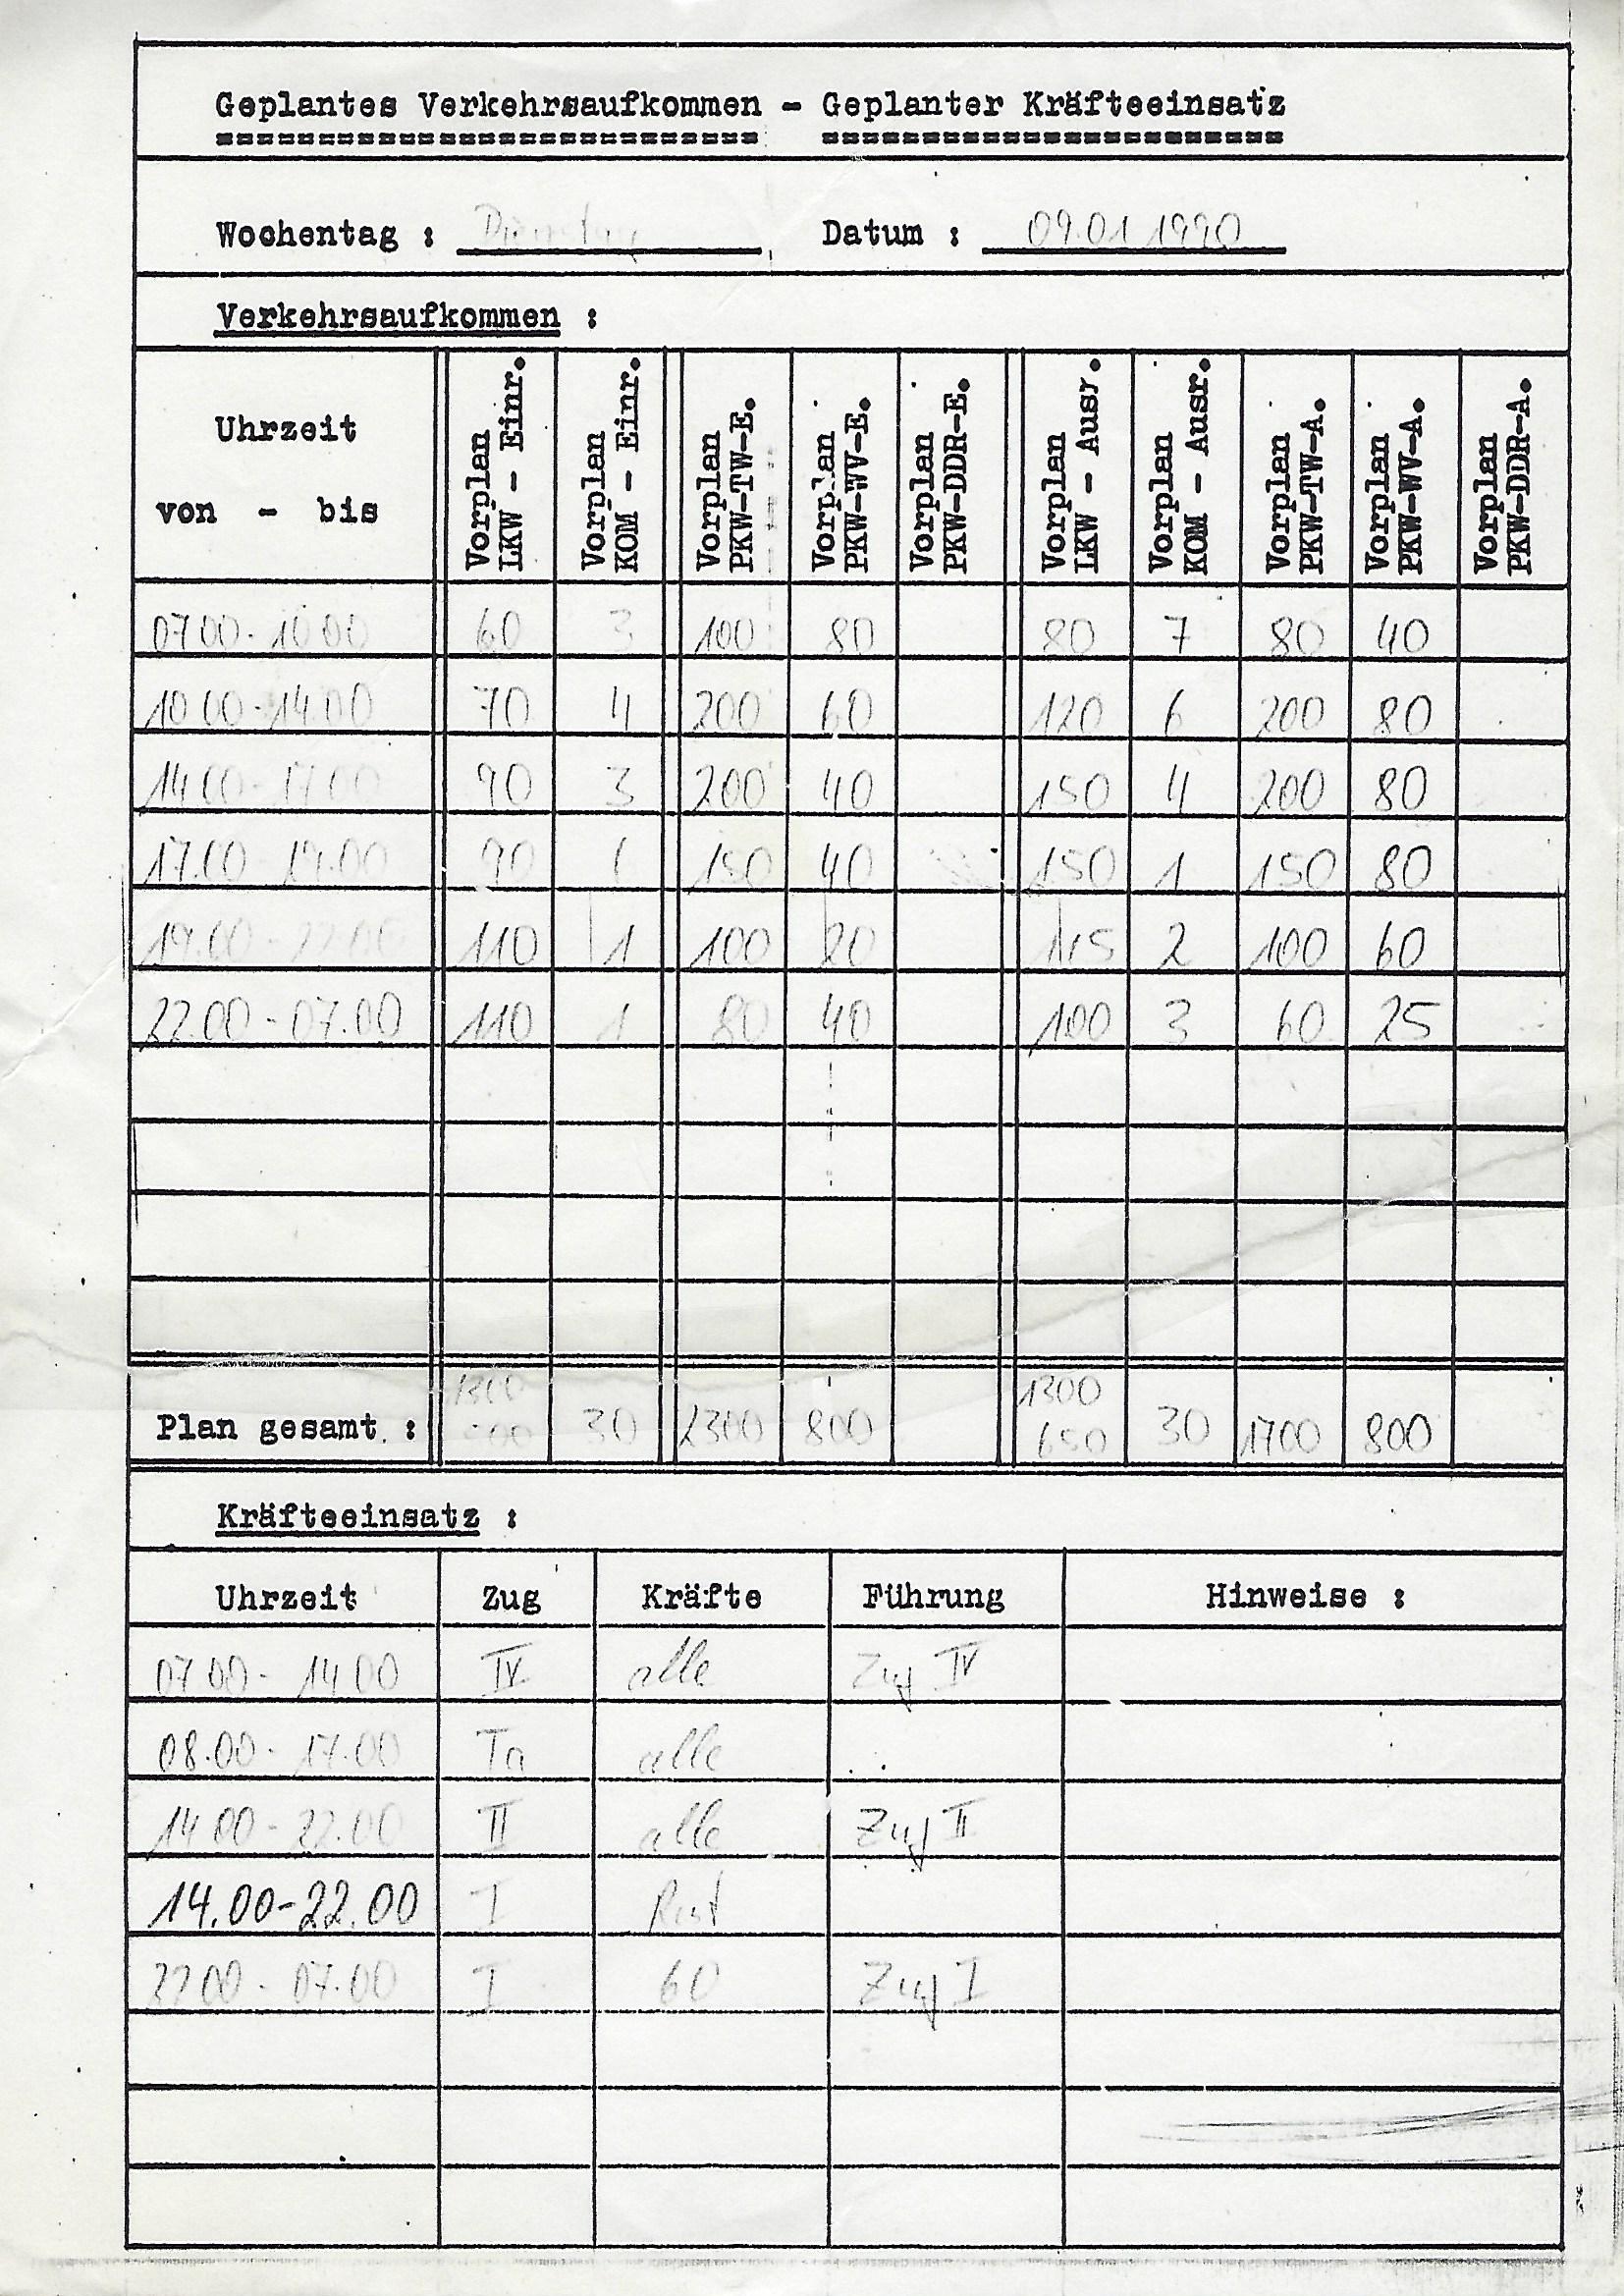 Geplantes Verkehrsaufkommen - Geplanter Kräfteeinsatz
Wochentag : Dienstag Datum : 09.01.1990
Verkehrsaufkommen :
Uhrzeit
von - bis
Vorplan LKW - Einr.
Vorplan KOM - Einr.
Vorplan PKW-TW-E.
Vorplan PKW-WV-E.
Vorplan PKW-DDR-E.
Vorplan LKW - Ausr.
Vorplan KOM - Ausr.
Vorplan PKW-TW-A.
Vorplan PKW-WV-A.
Vorplan PKW-DDR-A.
07.00 - 10.00 60 3 100 80 80 7 80 40
10.00 - 14.00 70 4 200 60 120 6 200 80
14.00 - 17.00 90 3 200 40 150 4 200 80
17.00 - 19.00 90 150 40 150 1 150 80
19.00 - 22.00 110 1 100 20 2 100 60
22.00 - 07.00 110 1 80 40 100 3 60 25
1300 1300
Plan gesamt : 30 2300 800 650 30 1700 800
Kräfteeinsatz :
Uhrzeit Zug Kräfte Führung Hinweise :
07.00 - 14.00 IV alle Zug IV
08.00 - 17.00 alle
14.00 - 22.00 II alle Zug II
14.00-22.00 I Rest
22.00 - 07.00 I 60 Zug I